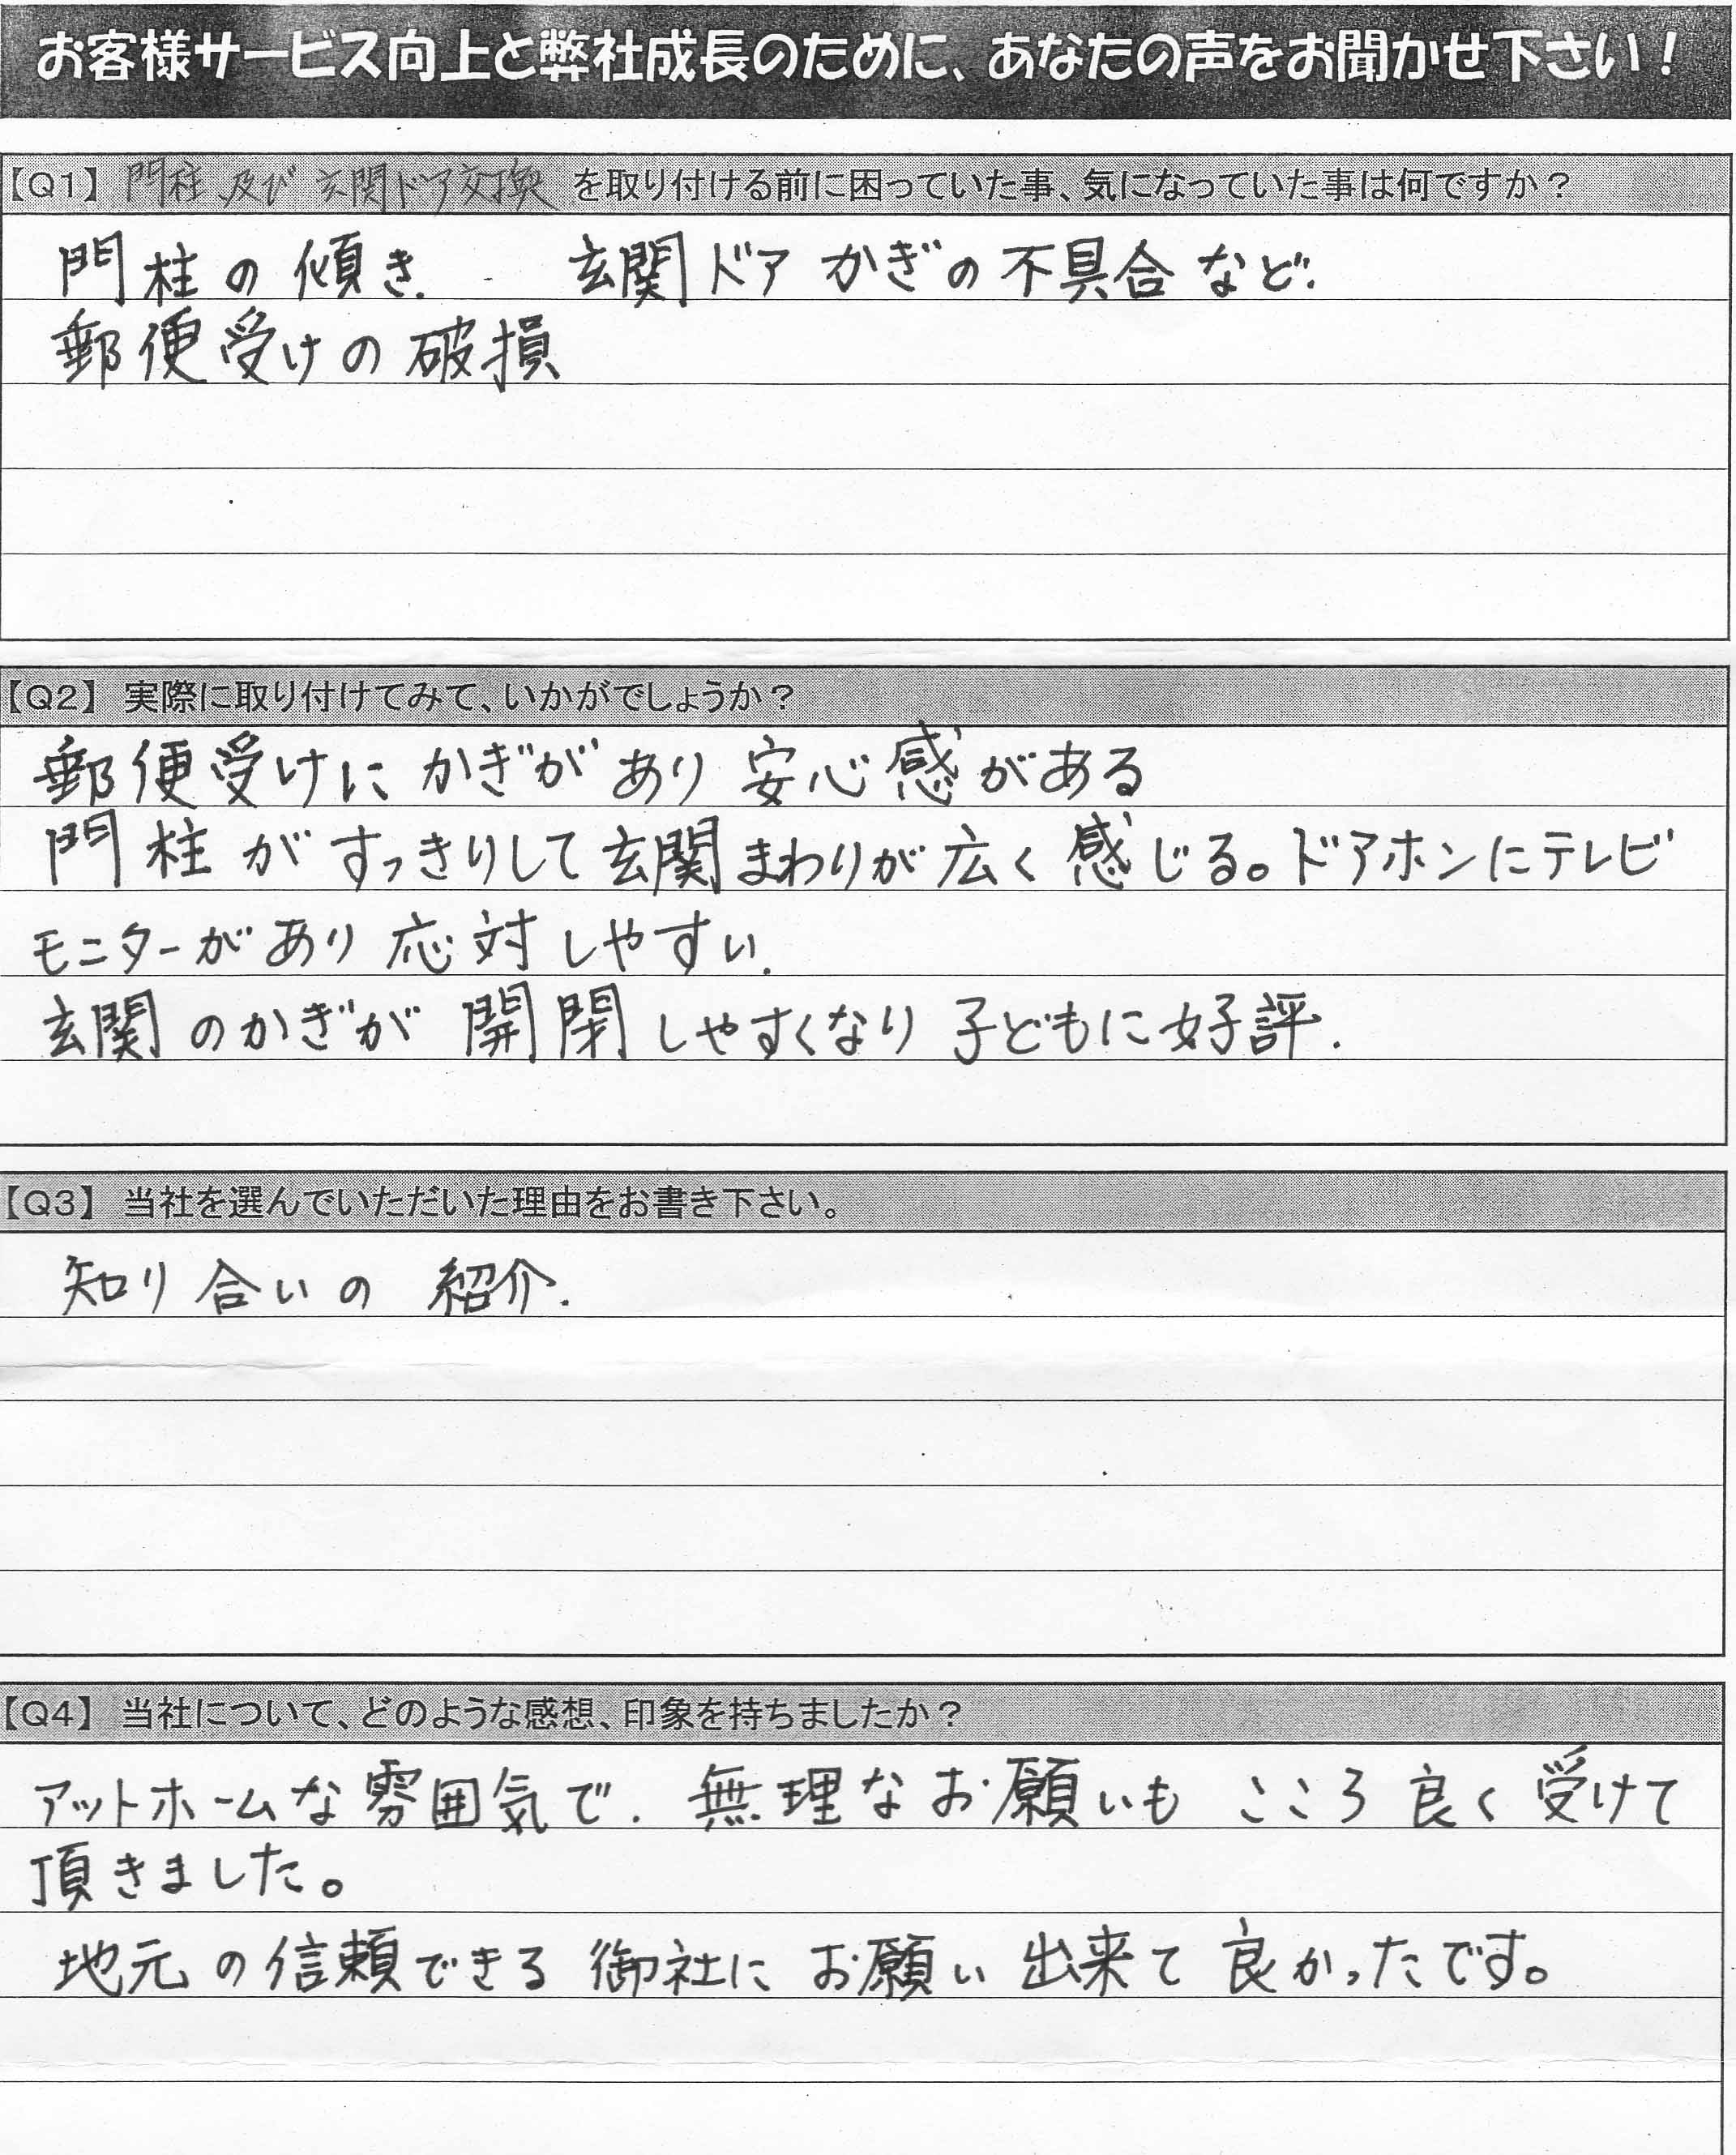 お客様サービス向上と弊社成長のために、あなたの声をお聞かせ下さい！
【Q1】 門柱、及び 玄関ドア交換 を取り付ける前に困っていた事、気になっていた事は何ですか？
門柱の傾き. 玄関ドア かぎの不具合など.
郵便受けの破損
【Q2】 実際に取り付けてみて、いかがでしょうか？
郵便受けに かぎがあり 安心感がある
門柱がすっきりして玄関まわりが広く感じる。ドアホンにテレビ
モニターがあり応対しやすい.
玄関のかぎが 開閉しやすくなり 子どもに好評.
【Q3】 当社を選んでいただいた理由をお書き下さい。
知り合いの 紹介.
【Q4】 当社について、どのような感想、印象を持ちましたか？
アットホームな雰囲気で. 無理なお願いも こころ良く受けて
頂きました。
地元の信頼できる 御社に お願い出来て 良かったです。